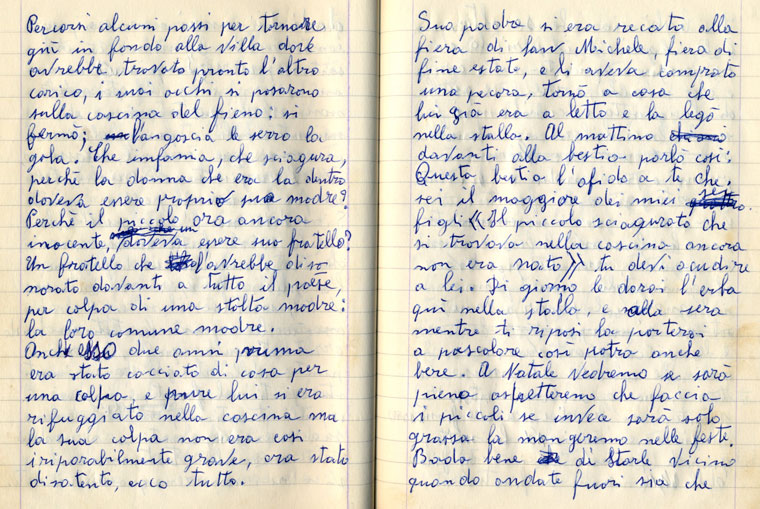 Percorsi alcuni passi per tornare
giù in fondo alla villa dove
avrebbe trovato pronto l'altro
carico, i suoi occhi si posarono
sulla cascina del fieno: si
fermò; l'angoscia le serro la
gola. Che infamia, che sciagura,
perchè la donna che era la dentro
doveva essere proprio sua madre?
Perchè il piccolo ora ancora
inocente, doveva essere suo fratello?
Un fratello che l'avrebbe diso
norato davanti a tutto il paese,
per colpa di una stolta madre:
la loro comune madre.
Anch esso due anni prima
era stato cacciato di casa per
una colpa, e pure lui si era
rifuggiato nella cascina ma
la sua colpa non era così
irriparabilmente grave, era stato
disatento, ecco tutto.
Suo padre si era recato alla
fiera di San Michele, fiera di
fine estate, e li aveva comprato
una pecora, tornò a casa che
lui già era a letto e la legò
nella stalla. Al mattino
davanti alla bestia parlò così:
Questa bestia l'afido a te che
sei il maggiore dei miei sei
figli《Il piccolo sciagurato che
si trovava nella cascina ancora
non era nato》 tu devi acudire
a lei. Di giorno le darai l'erba
qui nella stalla, e alla sera
mentre ti riposi la porterai
a pascolare così potra anche
bere. A Natale vedremo se sarà
piena aspetteremo che faccia
i piccoli se invece sarà solo
grassa la mangeremo nelle feste.
Bada bene di starle vicino
quando andate fuori sia che